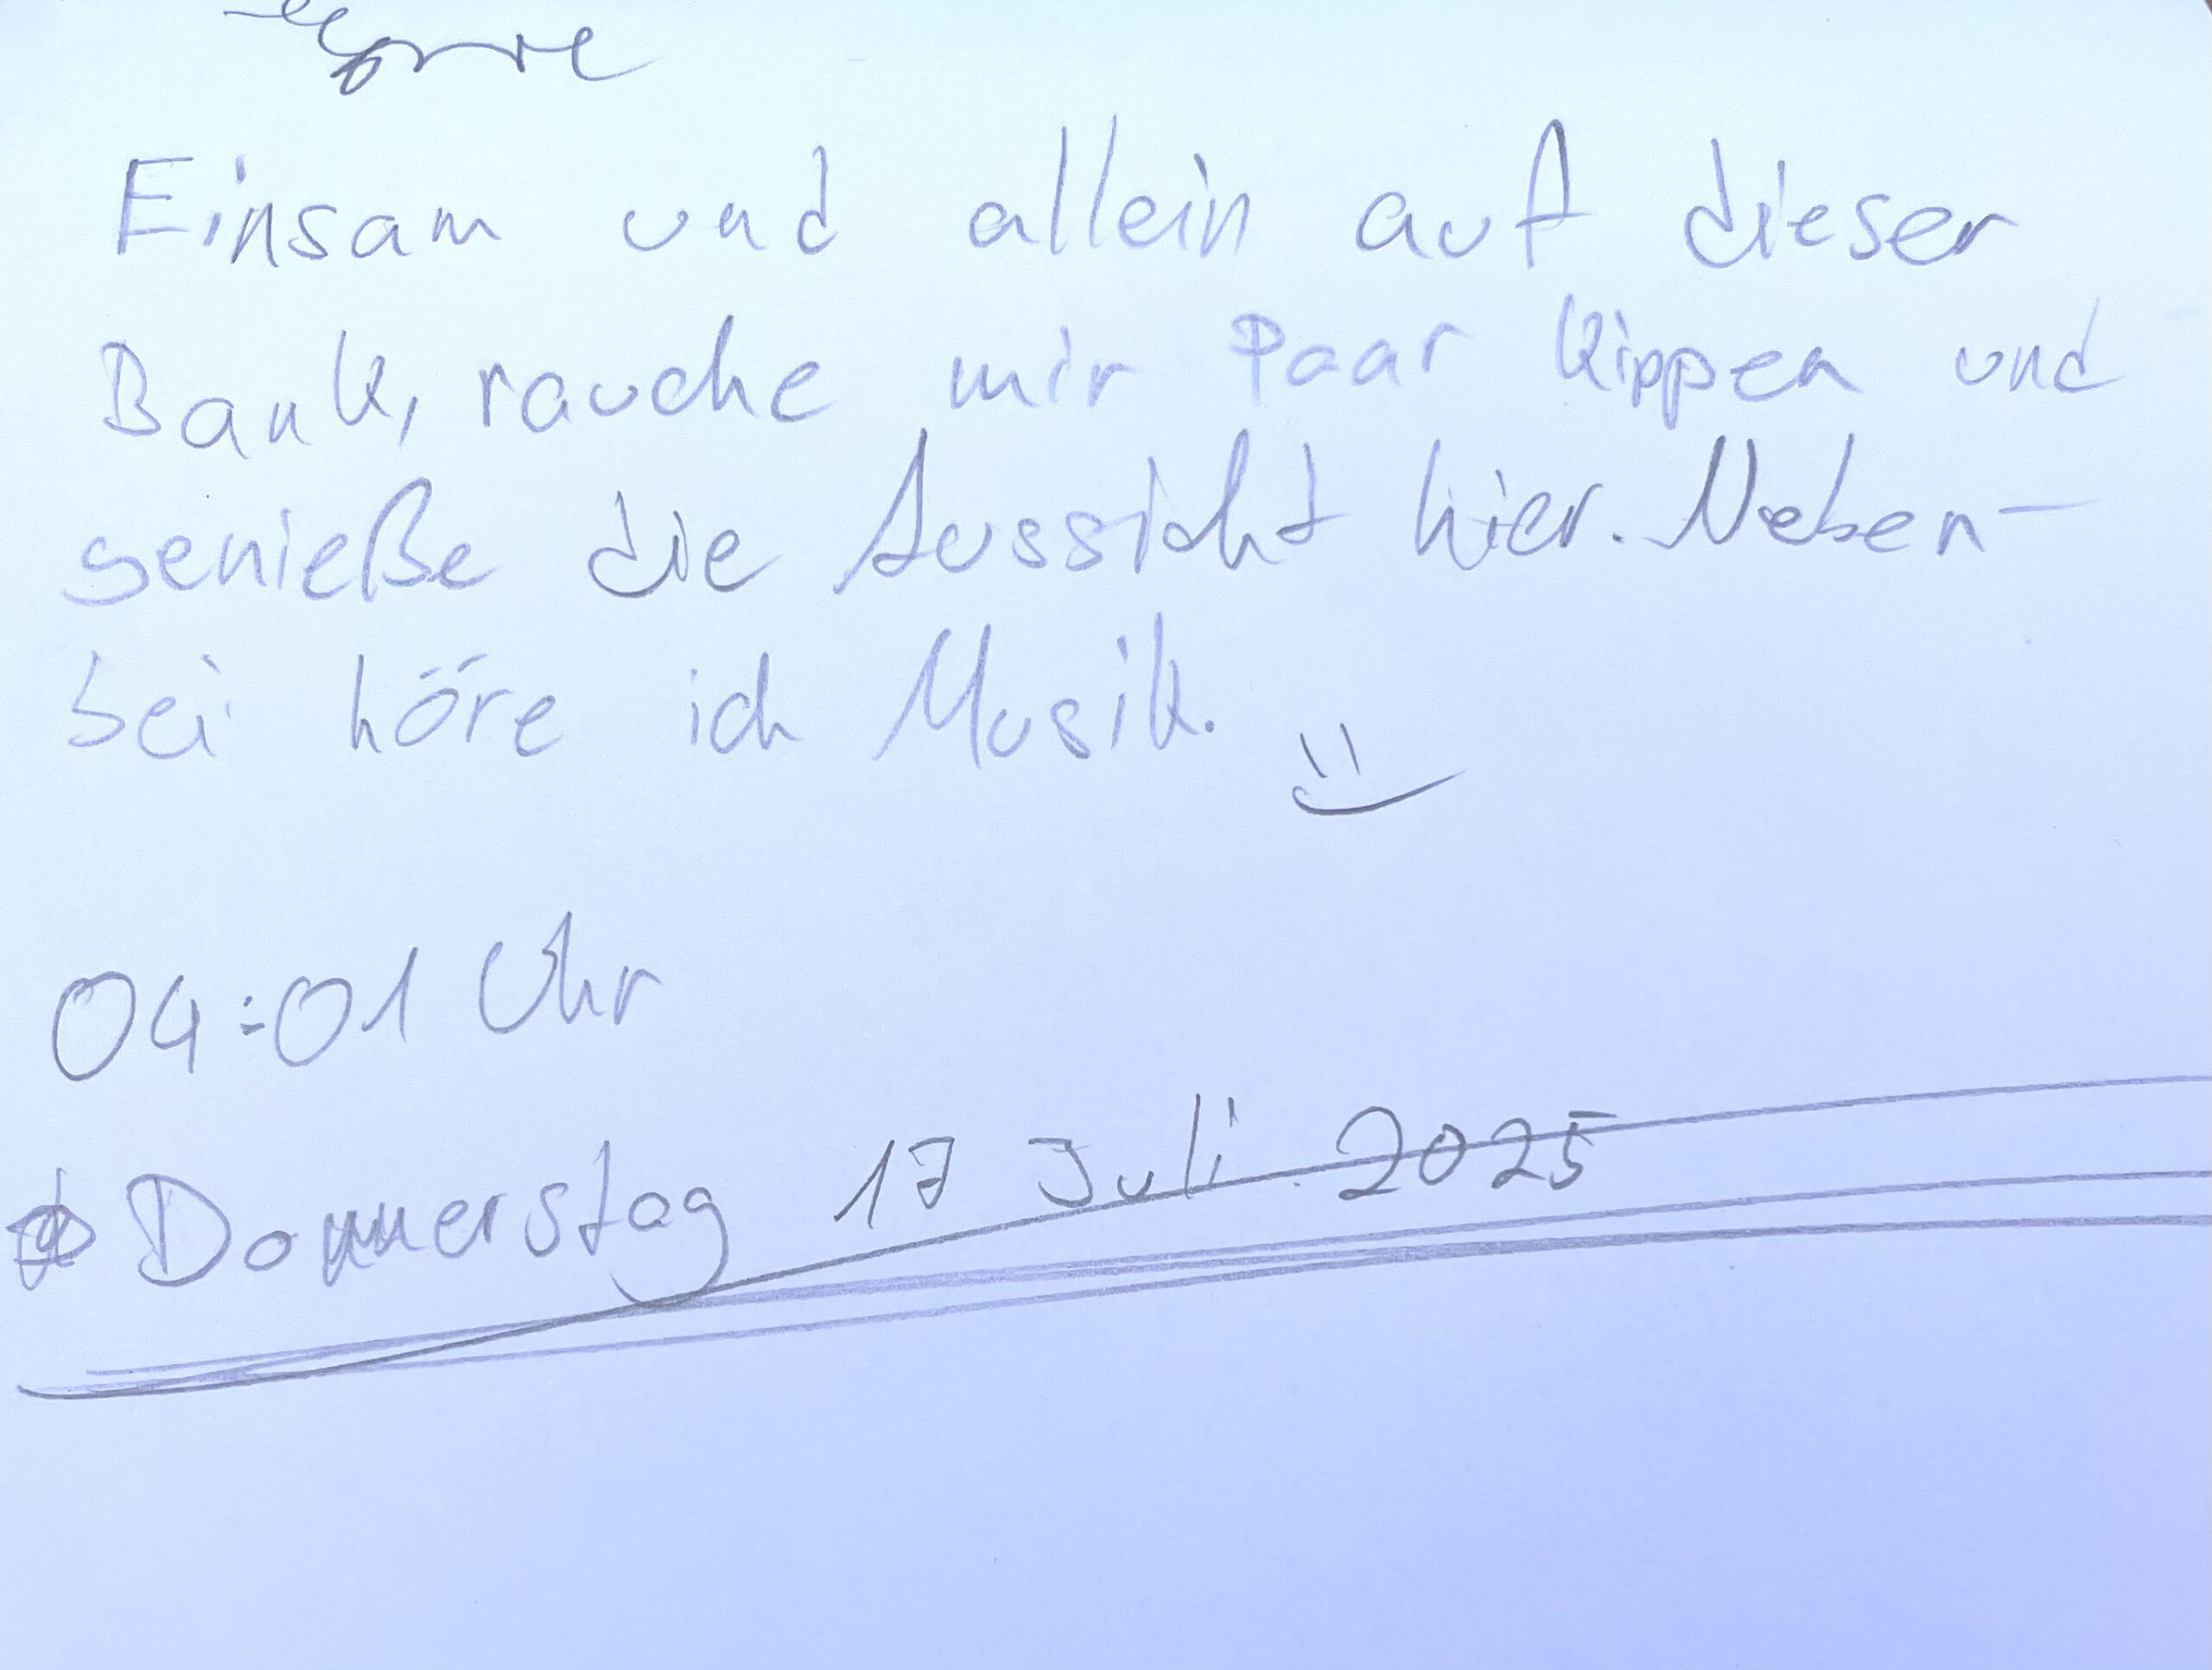 Einsam und allein auf dieser
Bank, rauche mir Paar Kippen und
genieße die Aussicht hier. Neben-
bei höre ich Musik.
04:01 Uhr
Donnerstag 17 Juli 2025